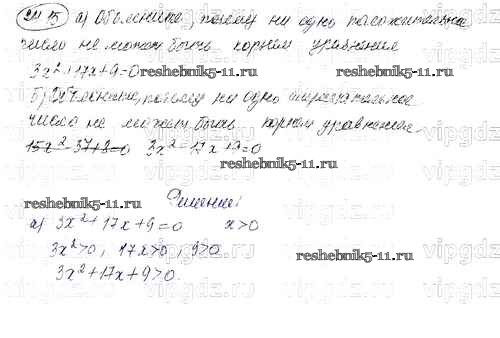 а) Объясните, почему ни одно положительное
число не может быть корнем уравнения
3x²+17x+9=0 reshebnik5-11.ru
б) Объясните, почему ни одно отрицательное
число не может быть корнем уравнения
15x²-37+8=0 3x²-17x+9=0
reshebnik5-11.ru
Решение
reshebnik5-11.ru
а) 3x²+17x+9=0 x>0
3x²>0, 17x>0, 9>0
reshebnik5-11.ru
3x²+17x+9>0.
vipgdz.ru